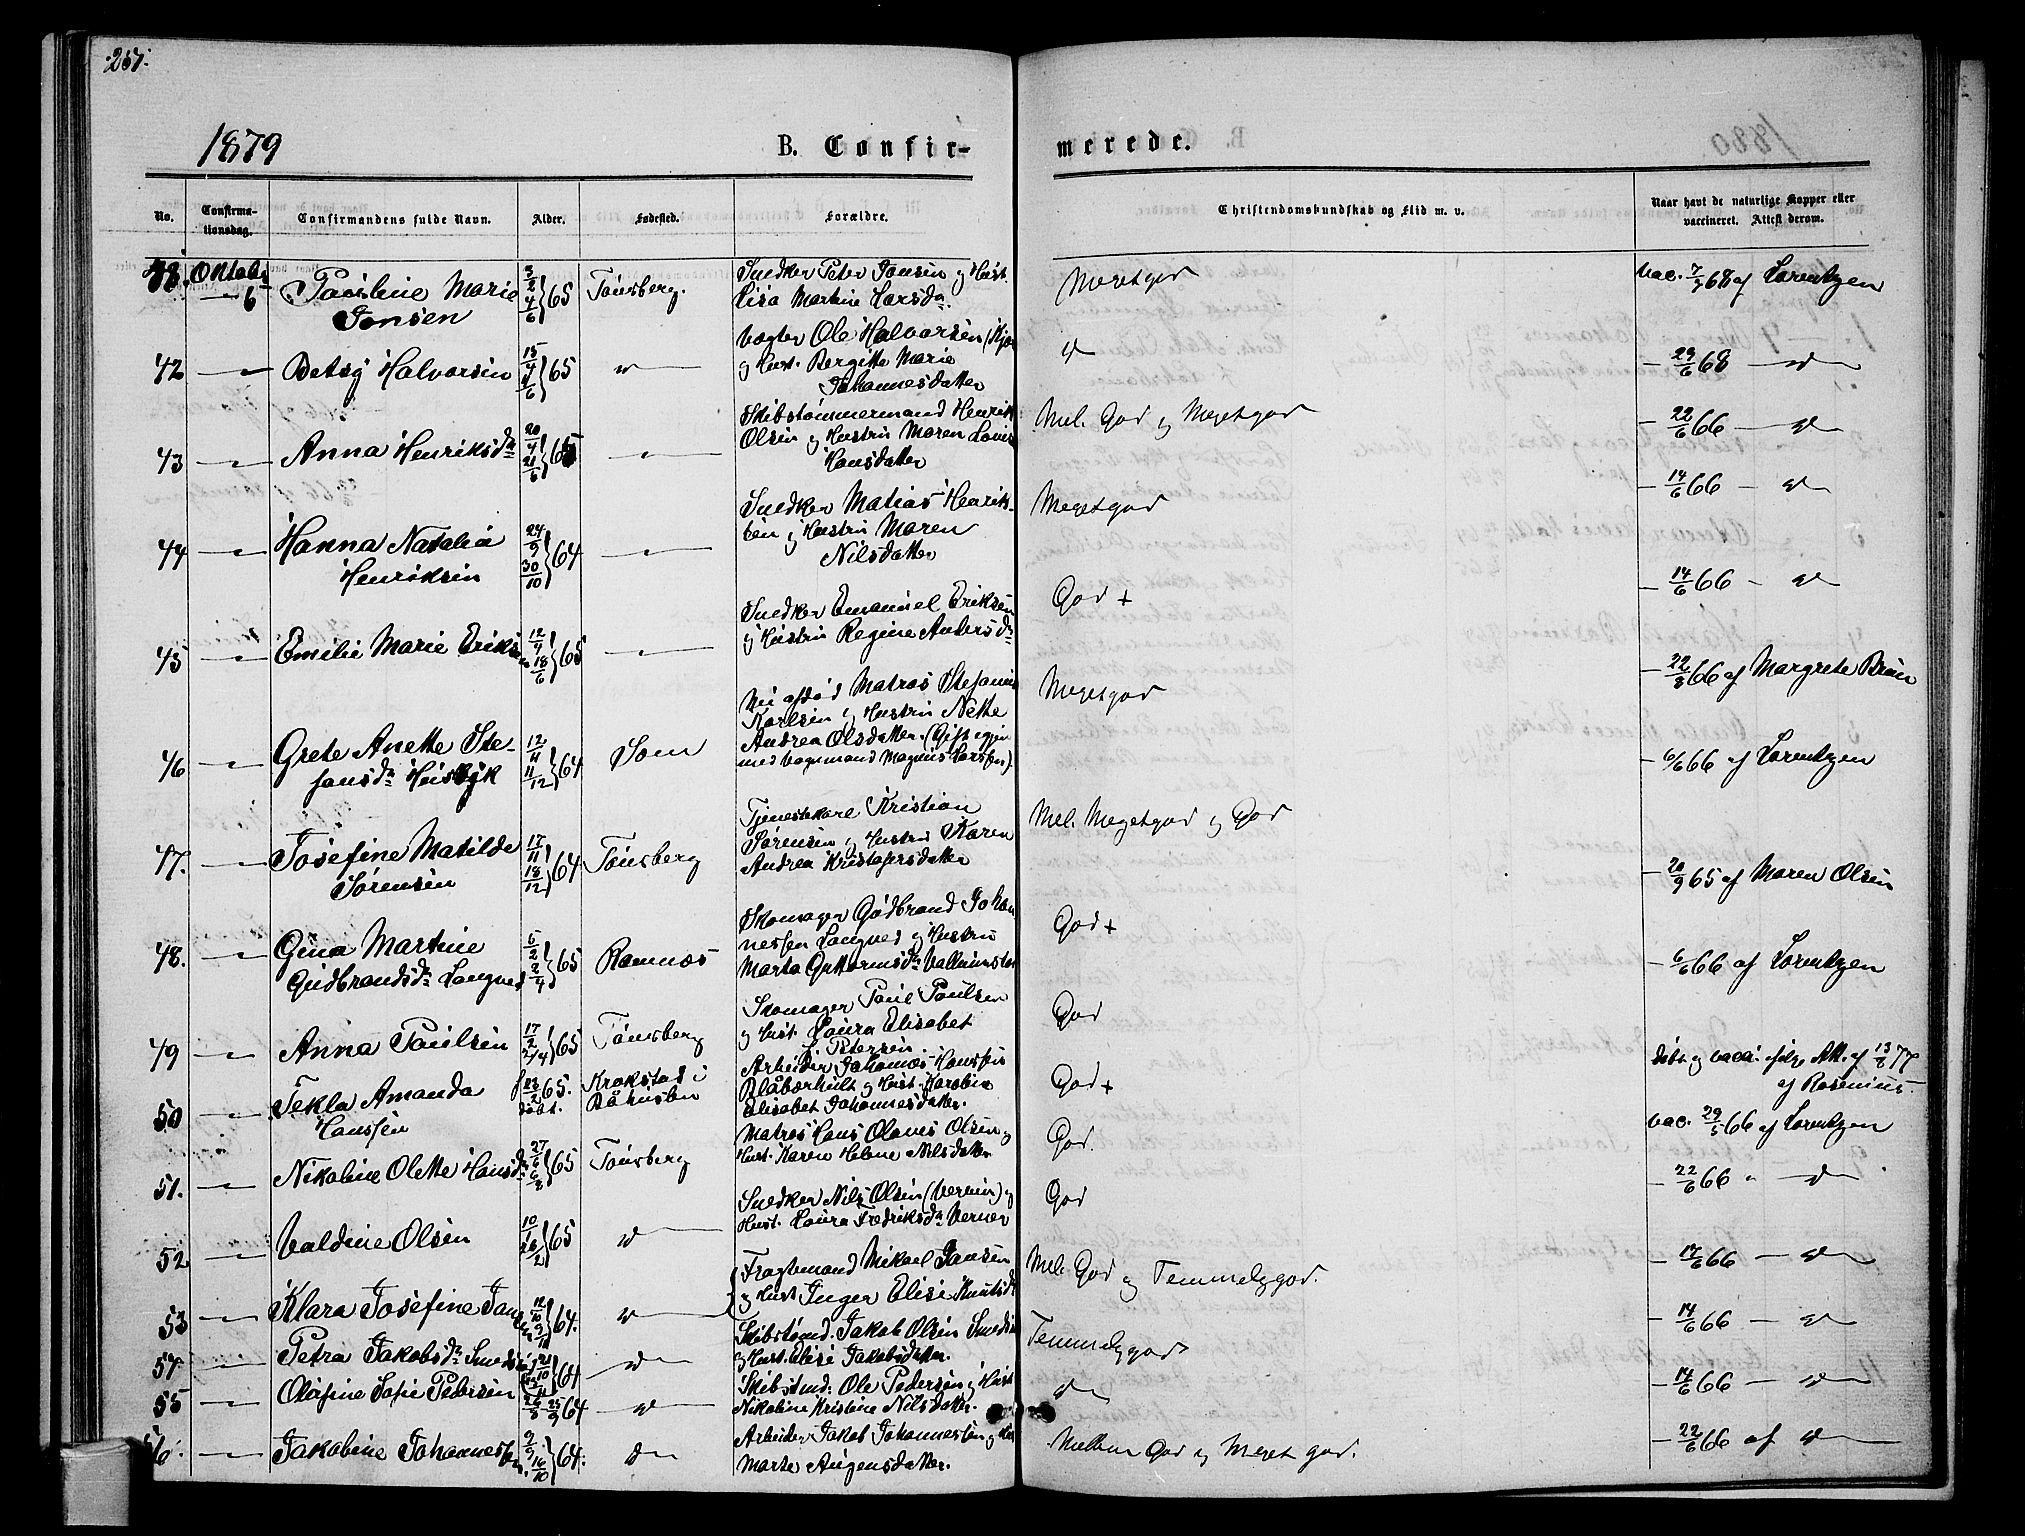 257.
1879
B. Confir-
merede.
No.
Confirma-
tionsdag.
Confirmandens fulde Navn.
Alder.
Fødested.
Forældre.
Christendomskundskab og Flid m. v.
Naar havt de naturlige Kopper eller
vaccineret. Attest derom.
Oktober 6 Paüline Marie Jonsen 65 Tönsberg. Snedker Peter Jonsen og Hust. Lisa Martine Larsdr. Megetgod vac. 68 af Lorentzen
42 Betsy Halvorsen 15/4 65 Vægter Ole Halvorsen og Hust. Bergitte Marie Johannesdatter 29/6 68
43 Anna Henriksdr 20/4 21/6 65 Skibstömmermand Henrik Olsen og Hustru Maren Lovis Hansdatter Mel. God og Megetgod 22/6 66
44 Hanna Natalia Henriksen 24/9 30/10 64 Snedker Matias Henriksen og Hustru Maren Nilsdatter Megetgod 14/6 66
45 Emilie Marie Eriksen 12/4 18/6 65 Snedker Emanuel Eriksen og Hustru Regine Andersdr God + 14/6 66
46 Grete Anette Stefansdr Huseby 12/11 11/12 64 Sem Nu afdöd Matros Karlsen og Hustru Nette Andrea Olsdatter (Gift igjen med Vognmand Magnus Larssen) Megetgod 22/8 66 af Margrete Brun
47. Josefine Matilde Sörensen 17/11 18/12 64 Tönsberg Tjenestekarl Kristian Sörensen og Hustru Karen Andrea Kristofersdatter Mel. Megetgod og God 6/6 66 af Lorentzen
48. Gina Martine Gudbrandsdr Langved 5/2 2/4 65 Ramnæs Skomager Gudbrand Johannessen Langved og Hustru Marta Guttormsdr God + 20/9 65 af Maren Olsen
49 Anna Paulsen 17/2 2/4 65 Tönsberg Skomager Paul Paulsen og Hust. Laura Elisabet Petersen God 6/6 66 af Lorentzen
50. Tekla Amanda Hanssen f. 23/2 65. döbt. Krokstad i Båhuslen Arbeider Johannes Hanssen Blåbærhult og Hust. Karolin Elisabet Johannesdatter. God + döbt og vacc. ifölge Att. af 13/8 77 af Rosenius.
51. Nikoline Olette Hansdr 27/6 6/8 65 Tönsberg Matros Hans Olaves Olsen og Hust. Karen Helene Nilsdatter God. vac. 29/5 66 af Lorentzen
52 Valdine Olsen 10/1 26/2 65 Snedker Nils Olsen og Hust. Laura Fredriksdr Verner God 22/6 66
53 Klara Josefine Jansen 12/10 9/11 64. Fragtemand Mikael Jansen og Hust Inger Elise Knutsdr Mel. God og Temmelyggod. 17/6 66
57 Petra Jakobsdr 21/10 64 Skibstømd. Jakob Olsen og Hust. Elise Jakobsdatter. Temmelyggod 14/6 66
55 Olafine Sofie Pedersen 26/8 25/9 64 Skibstmd: Ole Pedersen og Hust Nikoline Kristine Nilsdatter. 14/6 66
56. Jakobine Johannessen. 9/9 16/10 64. Arbeider Jakob Johannessen og Hust Marte Augensdatter. Mellem God og Meget god. 22/6 66 af